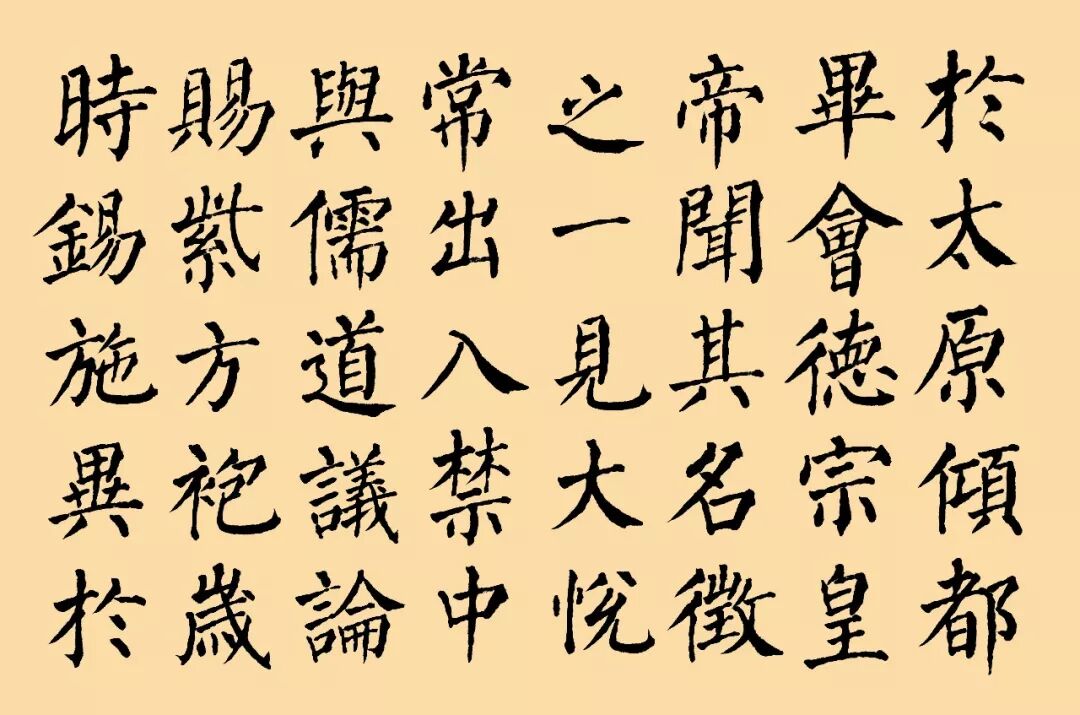 於太原傾都
畢會德宗皇
帝聞其名徵
之一見大悅
常出入禁中
與儒道議論
賜紫方袍歲
時錫施異於